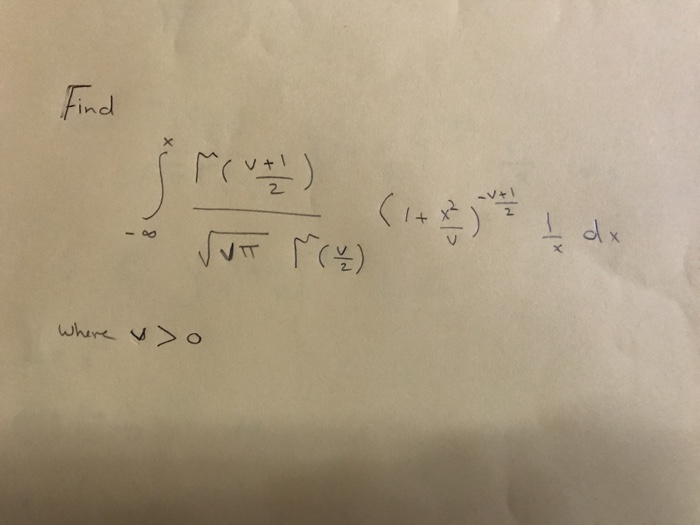 Find
∫_{-∞}^{x} \frac{Γ(\frac{v+1}{2})}{\sqrt{vπ} Γ(\frac{v}{2})} (1+\frac{x^2}{v})^{-\frac{v+1}{2}} \frac{1}{x} dx
where v > 0